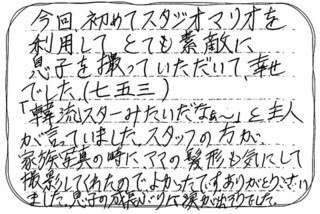 今回、初めてスタジオマリオを
利用して とても素敵に
息子を撮っていただいて、幸せ
でした。(七五三)
「韓流スターみたいだなぁ〜」と主人
が言っていました。スタッフの方が、
家族写真の時に ママの髪形も気にして
撮影してくれたのでよかったです。ありがとうござい
ました。息子の成長ぶりに涙が出そうでした。